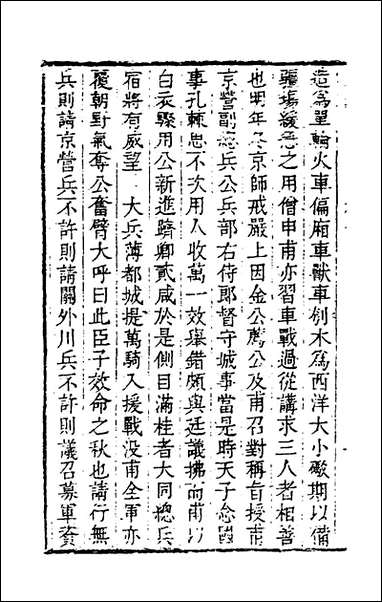 造為單輪火車偏廂車獸車刳木為西洋大小礮期以備
疆場緩急之用僧申甫亦習車戰過從講求三人者相善
也明年冬京師戒嚴上因金公薦公及甫召對稱旨授甫
京營副總兵公兵部右侍郎督守城事當是時天子念國
事孔棘思不次用人收萬一效舉錯頗與廷議拂而甫以
白衣驟用公新進躋卿貳咸於是側目滿桂者大同總兵
宿將有威望 大兵薄都城提萬騎入援戰没甫全軍亦
覆朝野氣奪公奮臂大呼曰此臣子效命之秋也請行無
兵則請京營兵不許則請關外川兵不許則議召募軍資